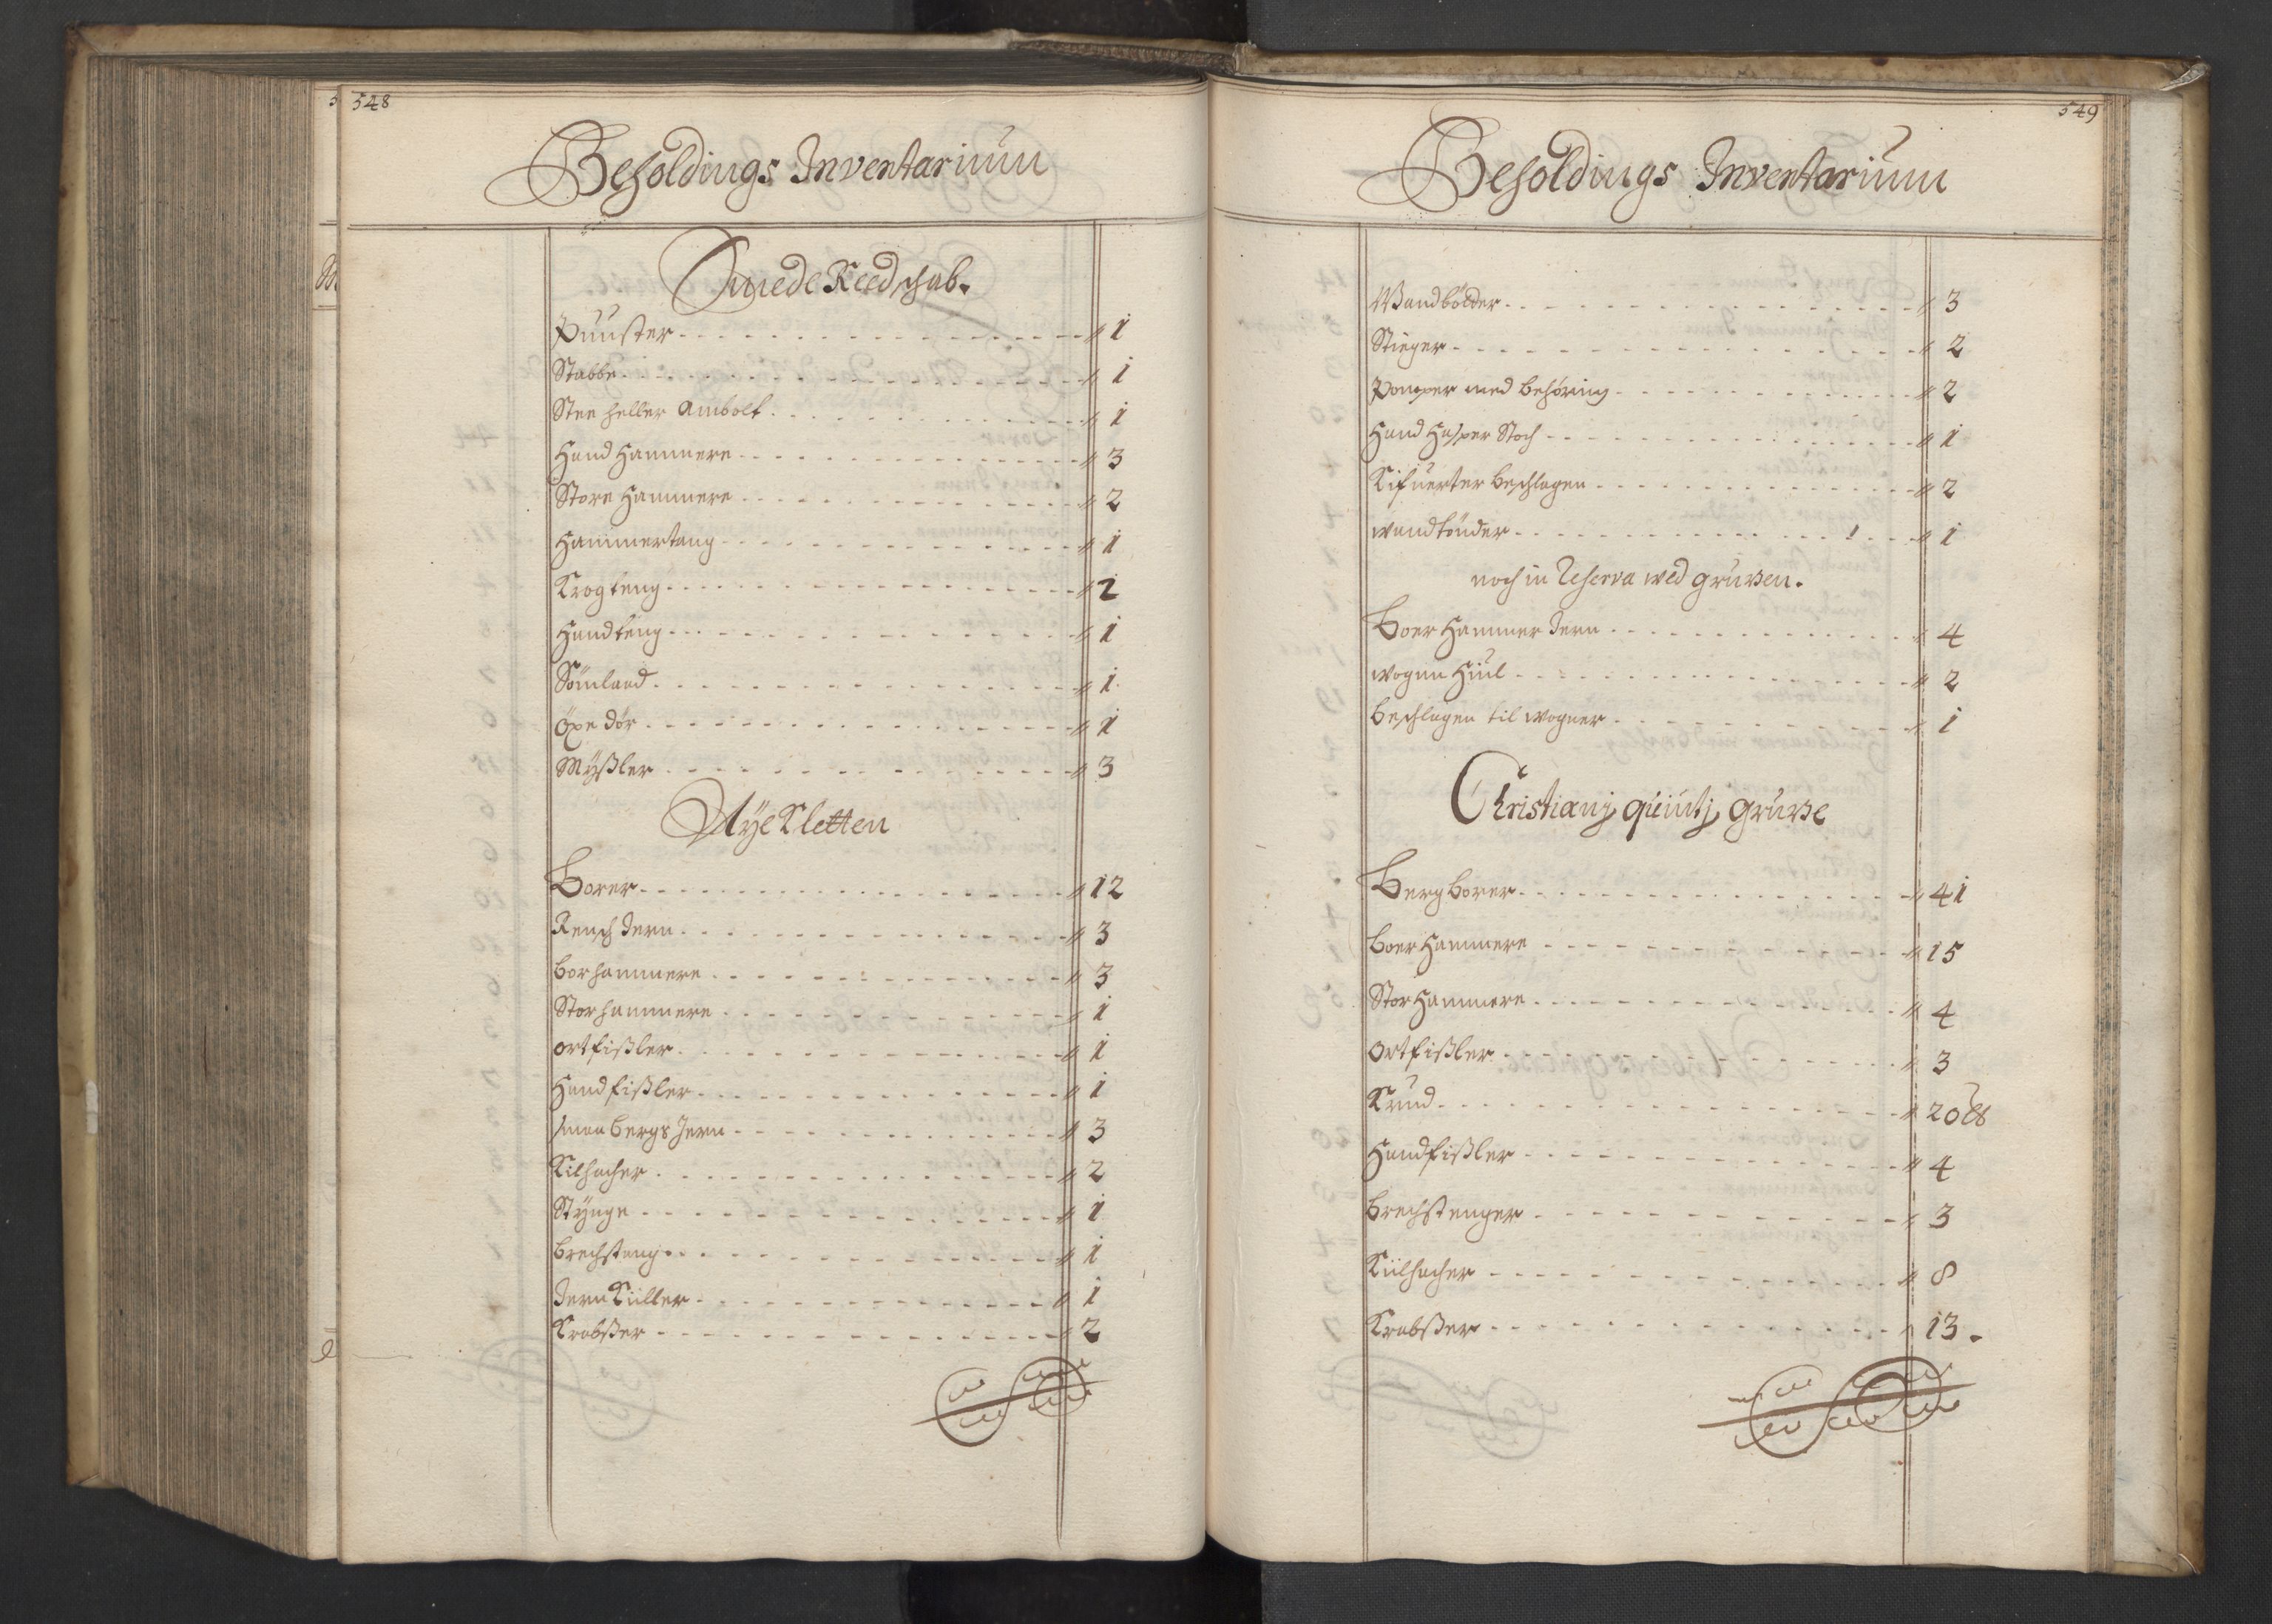 548
Beholdings Inventarium
Smede Reedschab.
Puuster 1
Stabbe 1
Stee heller Ambolt 1
Hand Hammere 3
Store Hammere 2
Hammertang 1
Krogteng 2
Handteng 1
Sömlaad 1
Öxe dör 1
Myßler 3
Nye Kletten
Borer 12
Rensch Jern 3
borhammere 3
Storhammere 1
ortfißler 1
Handfißler 1
smaa bergs Jern 3
Kilhacher 2
Stÿnge 1
brechstang 1
Jern Kiiller 1
Krabßer 2
549
Beholdings Inventarium
Wandbölder 3
Stieger 2
Pomper med behøring 2
Hand Hasper Stoch 1
Kifuerter beschlagen 2
wandtönder 1
noch in Reserva wed gruven.
Boer Hammer Jern 4
wogen Hiul 2
beschlagen til wogner 1
Christianj quintj gruve
Berg borer 41
boer Hammere 15
Stor Hammere 4
ortfißler 3
Krud 20 ℔
Handfißler 4
brechstenger 3
Kiilhacher 8
Krabßer 13.